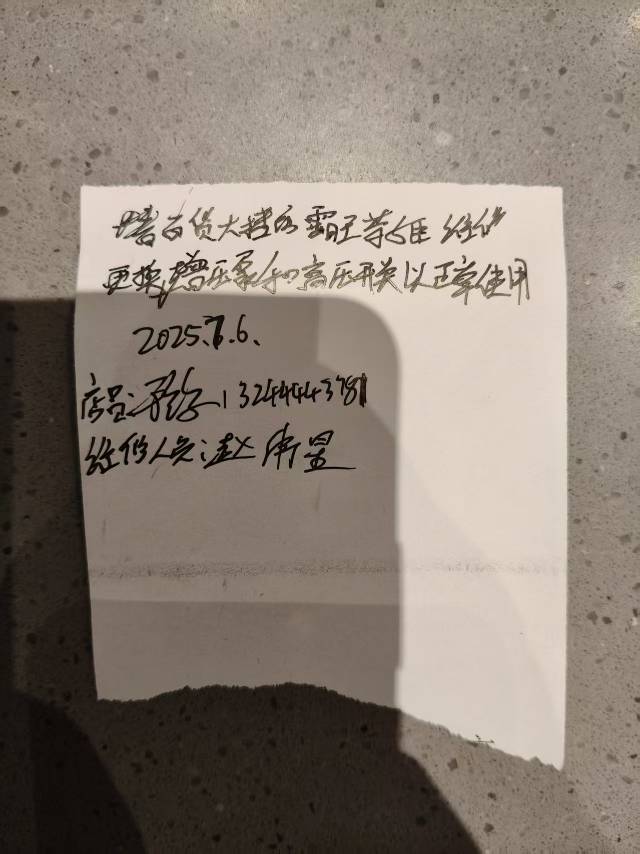 百货大楼店霸王茶姬 维修
更换增压泵和高压开关以正常使用
2025.7.6.
店员: 13244443781
维修人员:赵